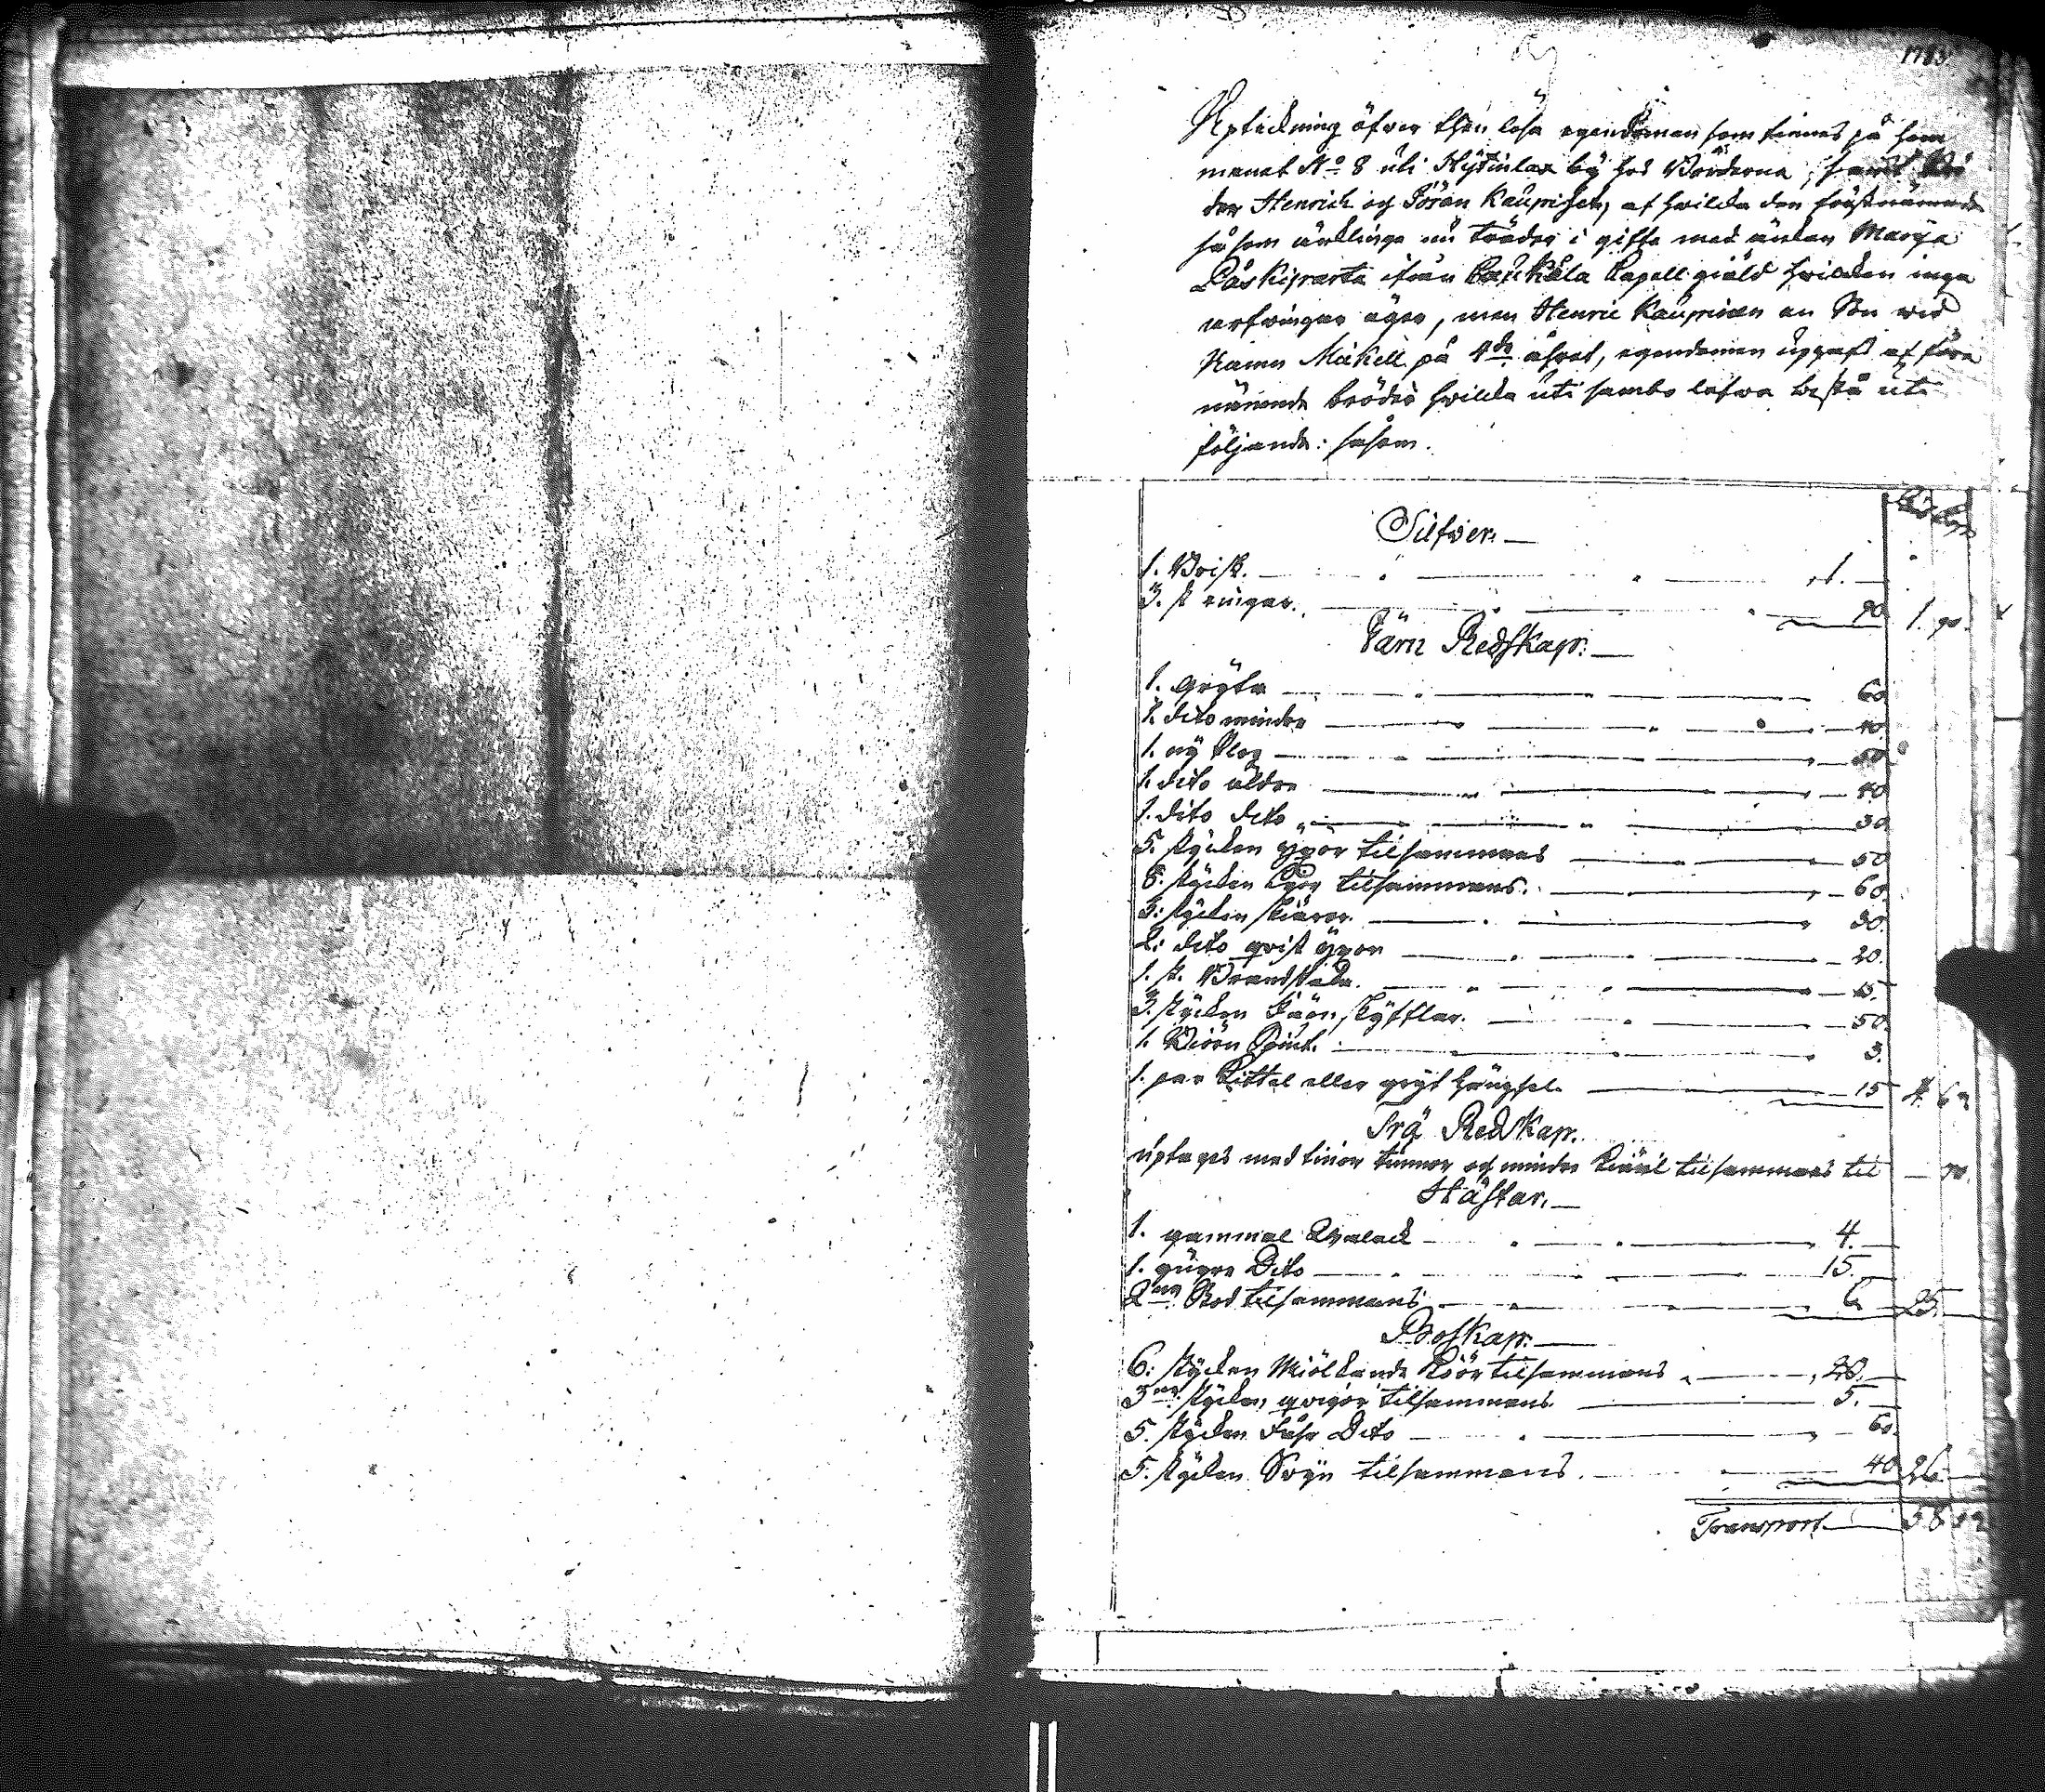 1783
Uptekning öfver then lösa egendomen som finnes på hem
manet No 8 uti Hÿtinlax bÿ hos Bönderna, samt Brö
der Henrich och Jöran Kaupisen, af hvilka den förstnämnde
så som änklinge nu träder i gifte med änkan Marja
ifrån Capell giäld hvilken inga
arfvingar äger, men Henric Kaupinen en Son wid
Namn Mickell på 4de åhret, egendomen upgafs af före
nämnde bröder hvilka uti sambo lefwa bestå uti
följande: såsom.
Silfwer.
1. Brisk. 1.
3. st ringar. 90 1. 90.
Järn Redskap.
1. gryta 60
1. dito mindre 40
1. nÿ Plog 50
1. dito äldre 40
1. dito dito 30
5. stÿcken ÿxor tilsammans 50
6. stÿcken Lijor tilsammans. 60.
3. stÿcken skiäror. 30.
2. dito qvist ÿxor 20.
1. st. 15.
3. stÿcken Järn skÿfflar. 50.
1. Biörn Spiut. 3.
1. par Kittel eller grÿt hängsel. 15 4. 63
Trä Redskap.
uptages med tinor tunnor och mindre kiäril tilsammans til 70.
Hästar.
1. gammal Walack 4.
1. ÿngre Dito 15.
2ne Stod tilsammans 6 25.
Boskap.
6. stÿcken Miölkande Koör tilsammans 20.
3ne stÿcken qvigor tilsammans 5.
5. stÿcken Fåhr Dito 60.
5. stÿcken Svÿn tilsammans. 40 26.
Transport 58 52